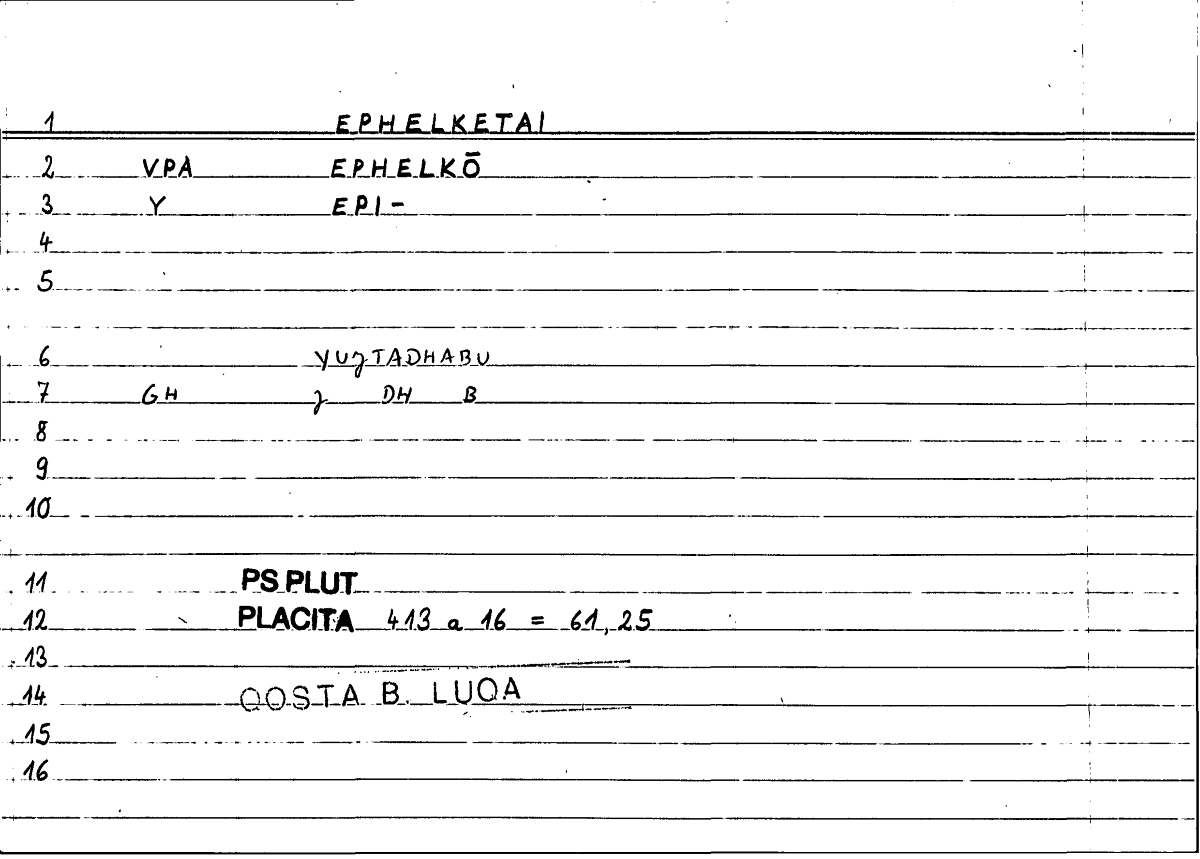 1 EPHELKETAI
2 VPA EPHELKŌ
3 Y EPI-
4
5
6 YUȷTADHABU
7 GH ȷ DH B
8
9
10
11 PS PLUT
12 PLACITA 413 a 16 = 61,25
13
14 QOSTA B. LUQA
15
16